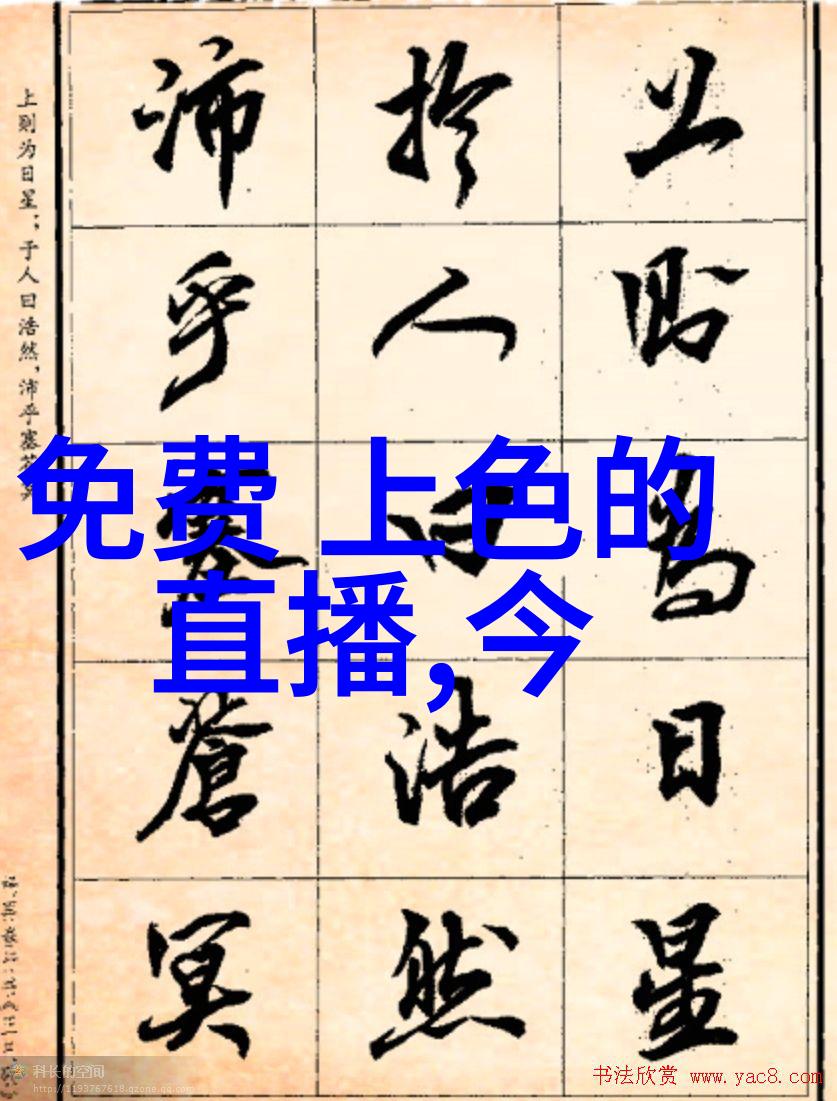 上则为日星
於人曰浩然
沛乎塞苍冥
上则为日星；于人曰浩然，沛乎塞苍冥
免费 上色的
直播,今
科长的空间
http://1193767618.qzone.qq.com
书法欣赏 www.yac8.com